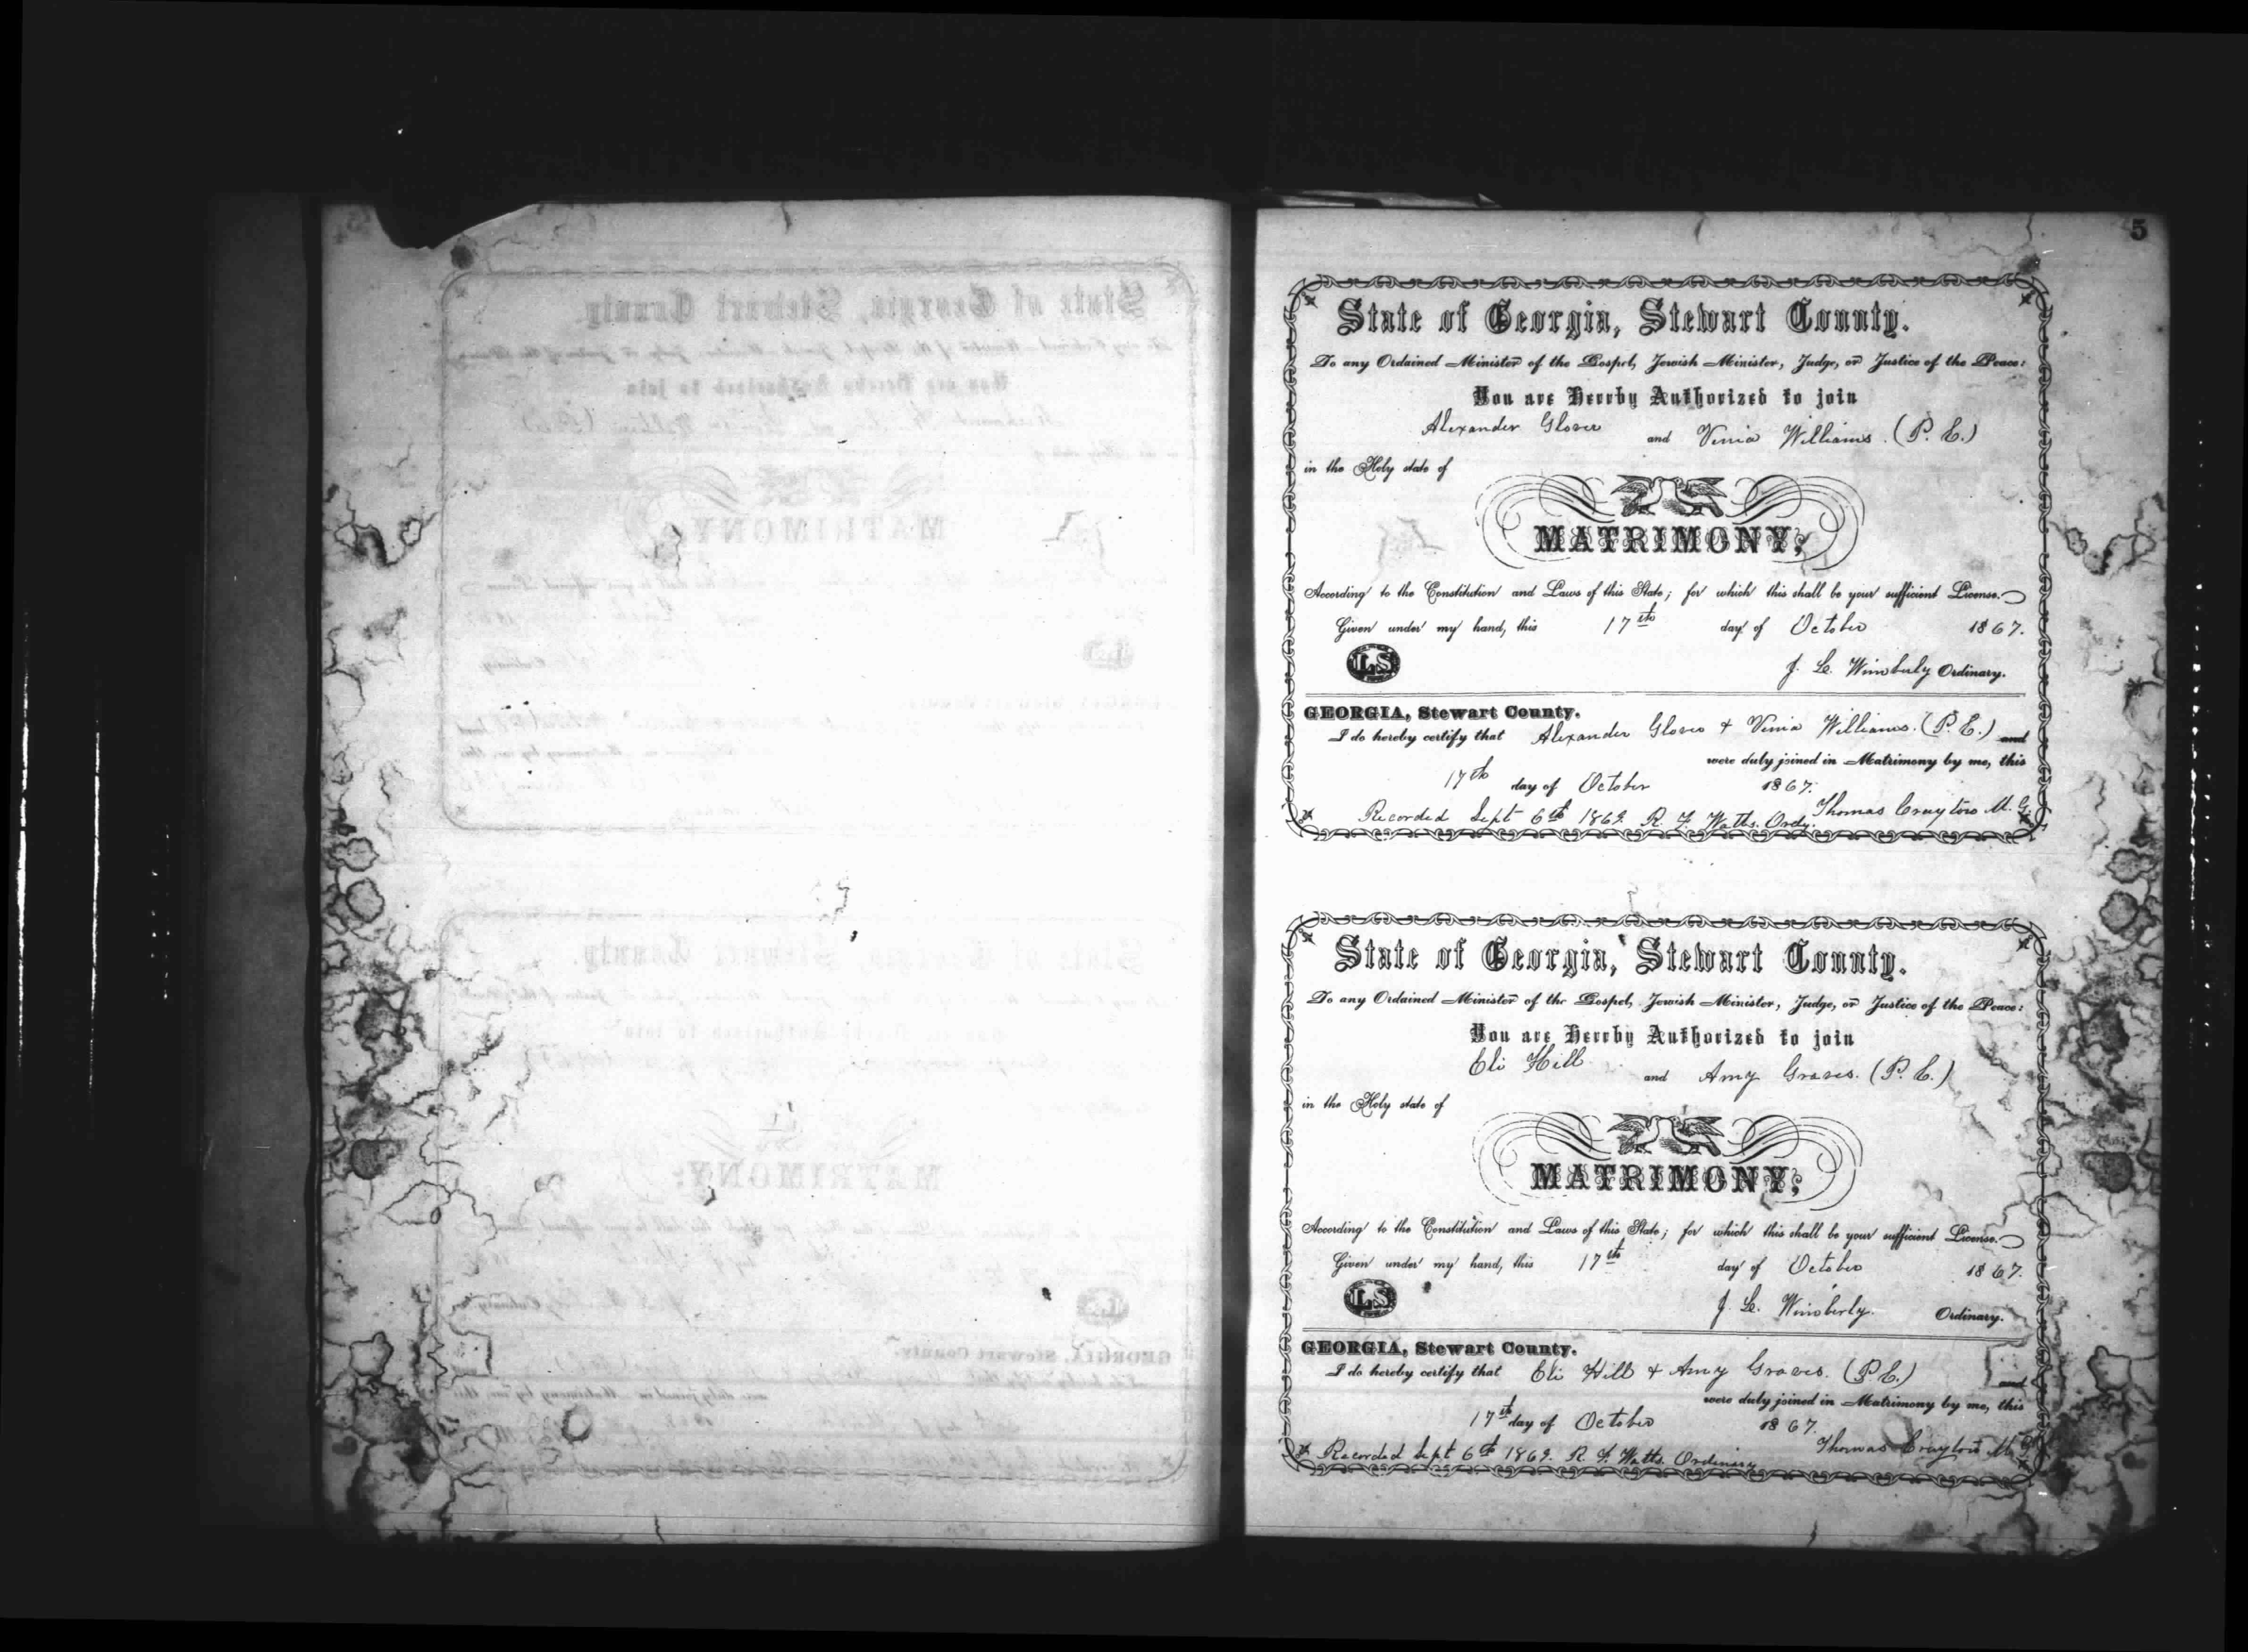 5
State of Georgia, Stewart County.
To any Ordained Minister of the Gospel, Jewish Minister, Judge, or Justice of the Peace:
You are Hereby Authorized to join
Alexander Glover and Venia Williams. (P. C.)
in the Holy state of
MATRIMONY,
According to the Constitution and Laws of this State; for which this shall be your sufficient License.
Given under my hand, this 17th day of October 1867.
LS J. L. Wimberly Ordinary.
GEORGIA, Stewart County.
I do hereby certify that Alexander Glover & Venia Williams. (P. C.) and
were duly joined in Matrimony by me, this
17th day of October 1867.
Thomas Crayton M. G.
Recorded Sept 6th 1869. R. F. Watts. Ordy.
State of Georgia, Stewart County.
To any Ordained Minister of the Gospel, Jewish Minister, Judge, or Justice of the Peace:
You are Hereby Authorized to join
Eli Hill and Amy Graves. (P. C.)
in the Holy state of
MATRIMONY,
According to the Constitution and Laws of this State; for which this shall be your sufficient License.
Given under my hand, this 17th day of October 1867.
LS J. L. Wimberly. Ordinary.
GEORGIA, Stewart County.
I do hereby certify that Eli Hill & Amy Graves. (P. C.) and
were duly joined in Matrimony by me, this
17th day of October 1867.
Thomas Crayton M. G.
Recorded Sept 6th 1869. R. F. Watts. Ordinary